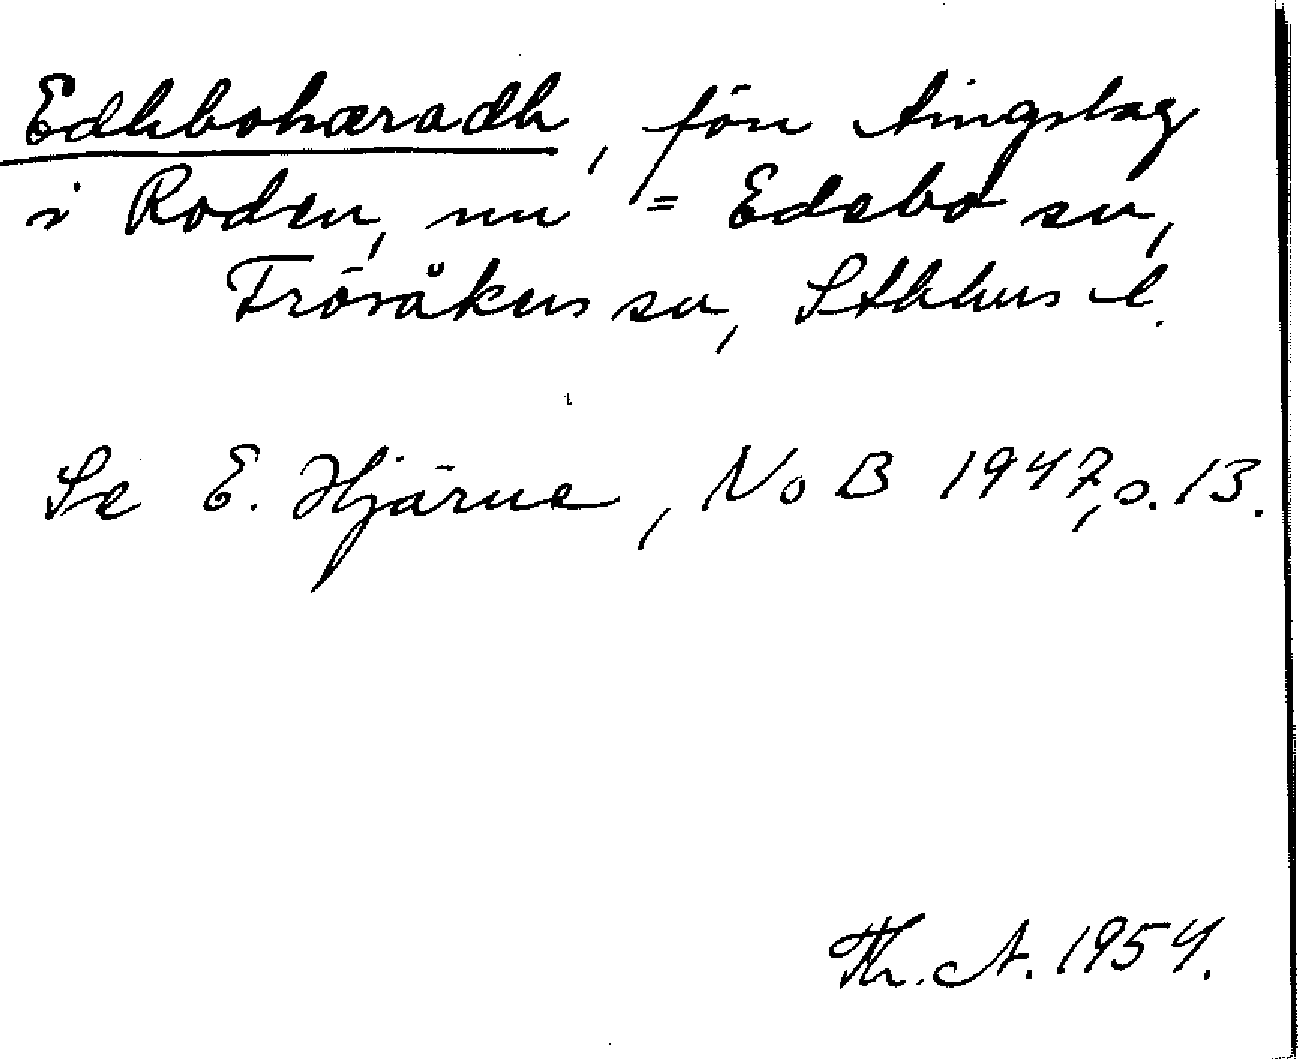 Edhbohæradh, förr tingslag
i Roden, nu = Edebo sn,
Frösåkers sn, Sthlms l.
Se E. Hjärne, NoB 1947, s. 13.
Th. A. 1954.